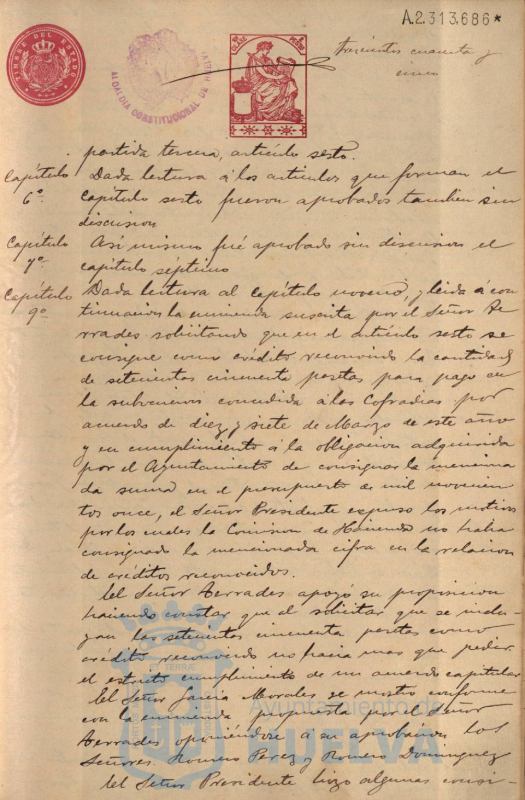 A.2.313.686*
TIMBRE DEL ESTADO
ALCALDIA CONSTITUCIONAL DE
trescientos cuarenta y
cinco
partida tercera, artículo sesto.
Capítulo 6º. Dada lectura á los artículos que forman el
capítulo sesto fueron aprobados tambien sin
discusion
Capítulo 7º. Asi mismo fué aprobado sin discusion el
capítulo séptimo
Capítulo 9º. Dada lectura al capítulo noveno, y leida á con
tinuacion la enmienda suscrita por el Señor Te-
rrades solicitando que en el artículo sesto se
consigne como crédito reconocido la cantidad
de setecientas cincuenta pesetas para pago de
la subvencion concedida á las Cofradias por
acuerdo de diez y siete de Marzo de este año
y en cumplimiento á la obligacion adquirida
por el Ayuntamiento de consignar la menciona
da suma en el presupuesto de mil novecien
tos once, el Señor Presidente expuso los motivos
por los cuales la Comision de Hacienda no habia
consignado la mencionada cifra en la relacion
de créditos reconocidos.
El Señor Terrades apoyó su proposicion
haciendo constar que al solicitar que se inclu-
yan las setecientas cincuenta pesetas como
crédito reconocido no hacia mas que pedir
el estricto cumplimiento de un acuerdo capitular
El Señor Garcia Morales se mostró conforme
con la enmienda propuesta por el Señor
Terrades oponiéndose á su aprobacion los
Señores Romero Perez y Romero Dominguez
El Señor Presidente hizo algunas consi-
Ayuntamiento de
HUELVA